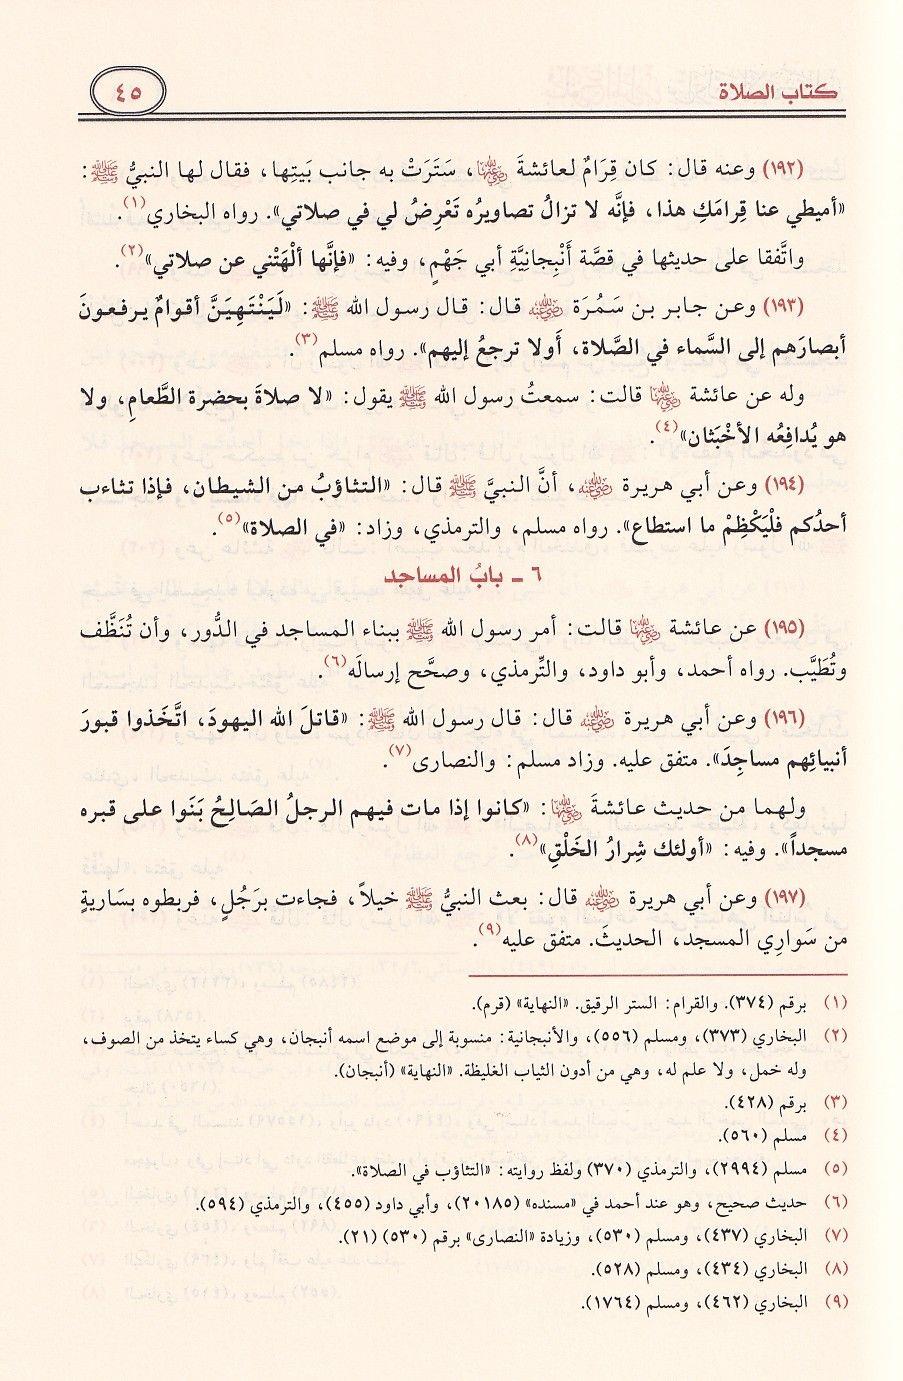 كتاب الصلاة
٤٥
(١٩٢) وعنه قال: كان قِرَامٌ لعائشةَ رضي الله عنها، سَتَرَتْ به جانب بَيتِها، فقال لها النبيُّ ﷺ:
«أميطي عنا قِرامَكِ هذا، فإنَّه لا تزالُ تصاويرُه تَعْرِضُ لي في صلاتي». رواه البخاري(١).
واتَّفقا على حديثها في قصَّة أَنْبِجانِيَّةِ أبي جَهْمٍ، وفيه: «فإنَّها ألْهَتْني عن صلاتي»(٢).
(١٩٣) وعن جابر بن سَمُرَة رضي الله عنه قال: قال رسول الله ﷺ: «لَيَنْتَهِيَنَّ أقوامٌ يرفعونَ
أبصارَهم إلى السَّماء في الصَّلاة، أَولا ترجعُ إليهم». رواه مسلم(٣).
وله عن عائشة رضي الله عنها قالت: سمعتُ رسول الله ﷺ يقول: «لا صلاةَ بحضرة الطَّعامِ، ولا
هو يُدافِعُه الأخْبَثان»(٤).
(١٩٤) وعن أبي هريرة رضي الله عنه، أنَّ النبيَّ ﷺ قال: «التثاؤبُ من الشيطان، فإذا تثاءب
أحدُكم فلْيَكْظِمْ ما استطاع». رواه مسلم، والترمذي، وزاد: «في الصلاة»(٥).
٦ ـ بابُ المساجد
(١٩٥) عن عائشة رضي الله عنها قالت: أمر رسول الله ﷺ ببناء المساجد في الدُّور، وأن تُنَظَّف
وتُطَيَّب. رواه أحمد، وأبو داود، والتِّرمذي، وصحَّح إرسالَه(٦).
(١٩٦) وعن أبي هريرة رضي الله عنه قال: قال رسول الله ﷺ: «قاتلَ الله اليهودَ، اتَّخَذوا قبورَ
أنبيائِهم مساجِدَ». متفق عليه. وزاد مسلم: والنصارى(٧).
ولهما من حديث عائشةَ رضي الله عنها: «كانوا إذا مات فيهم الرجلُ الصَالِحُ بَنَوا على قبره
مسجداً». وفيه: «أولئك شِرارُ الخَلْقِ»(٨).
(١٩٧) وعن أبي هريرة رضي الله عنه قال: بعث النبيُّ ﷺ خيلاً، فجاءت برَجُلٍ، فربطوه بسَاريةٍ
من سَوارِي المسجد، الحديثَ. متفق عليه(٩).
(١) برقم (٣٧٤). والقرام: الستر الرقيق. «النهاية» (قرم).
(٢) البخاري (٣٧٣)، ومسلم (٥٥٦)، والأنبجانية: منسوبة إلى موضع اسمه أنبجان، وهي كساء يتخذ من الصوف،
وله خمل، ولا علم له، وهي من أدون الثياب الغليظة. «النهاية» (أنبجان).
(٣) برقم (٤٢٨).
(٤) مسلم (٥٦٠).
(٥) مسلم (٢٩٩٤)، والترمذي (٣٧٠) ولفظ روايته: «التثاؤب في الصلاة».
(٦) حديث صحيح، وهو عند أحمد في «مسنده» (٢٠١٨٥)، وأبي داود (٤٥٥)، والترمذي (٥٩٤).
(٧) البخاري (٤٣٧)، ومسلم (٥٣٠)، وزيادة «النصارى» برقم (٥٣٠) (٢١).
(٨) البخاري (٤٣٤)، ومسلم (٥٢٨).
(٩) البخاري (٤٦٢)، ومسلم (١٧٦٤).